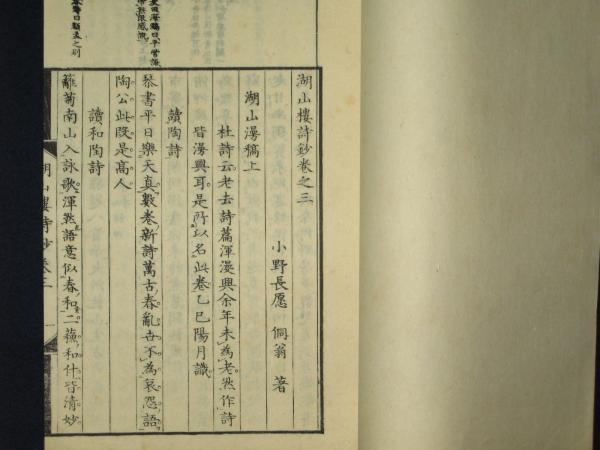 湖山樓詩鈔卷之三
小野長愿 侗翁 著
湖山漫稿上
杜詩云老去詩篇渾漫興余年未為老然作詩
皆漫興耳是所以名此卷乙巳陽月識
讀陶詩
琴書平日樂天真數卷新詩萬古春亂世不為哀怨語
陶公此際是高人
讀和陶詩
籬菊南山入詠歌渾然語意似春和二蘓和什皆清妙
湖山樓詩鈔卷三